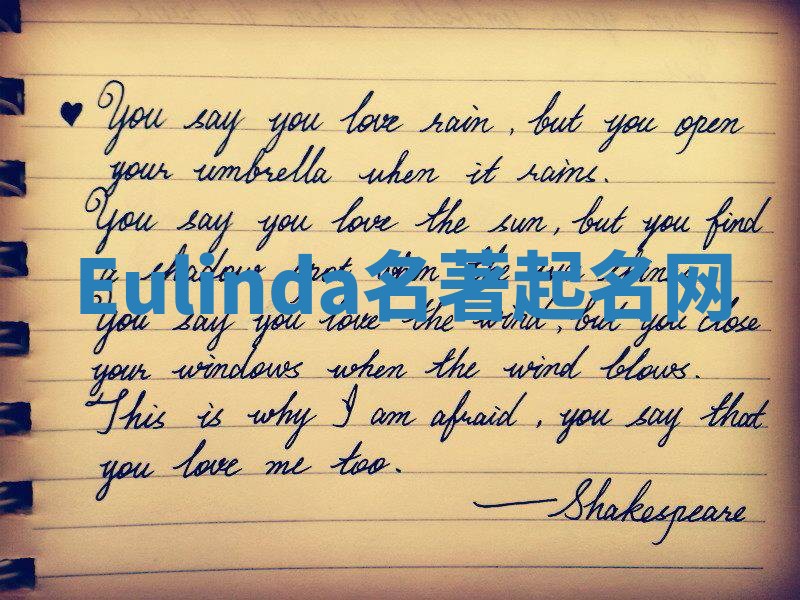 ♥ You say you love rain, but you open
your umbrella when it rains.
You say you love the sun, but you find
a shadow spot when the sun shines.
Eulinda名著起名网
You say you love the wind, but you close
your windows when the wind blows.
This is why I am afraid, you say that
you love me too.
—Shakespeare